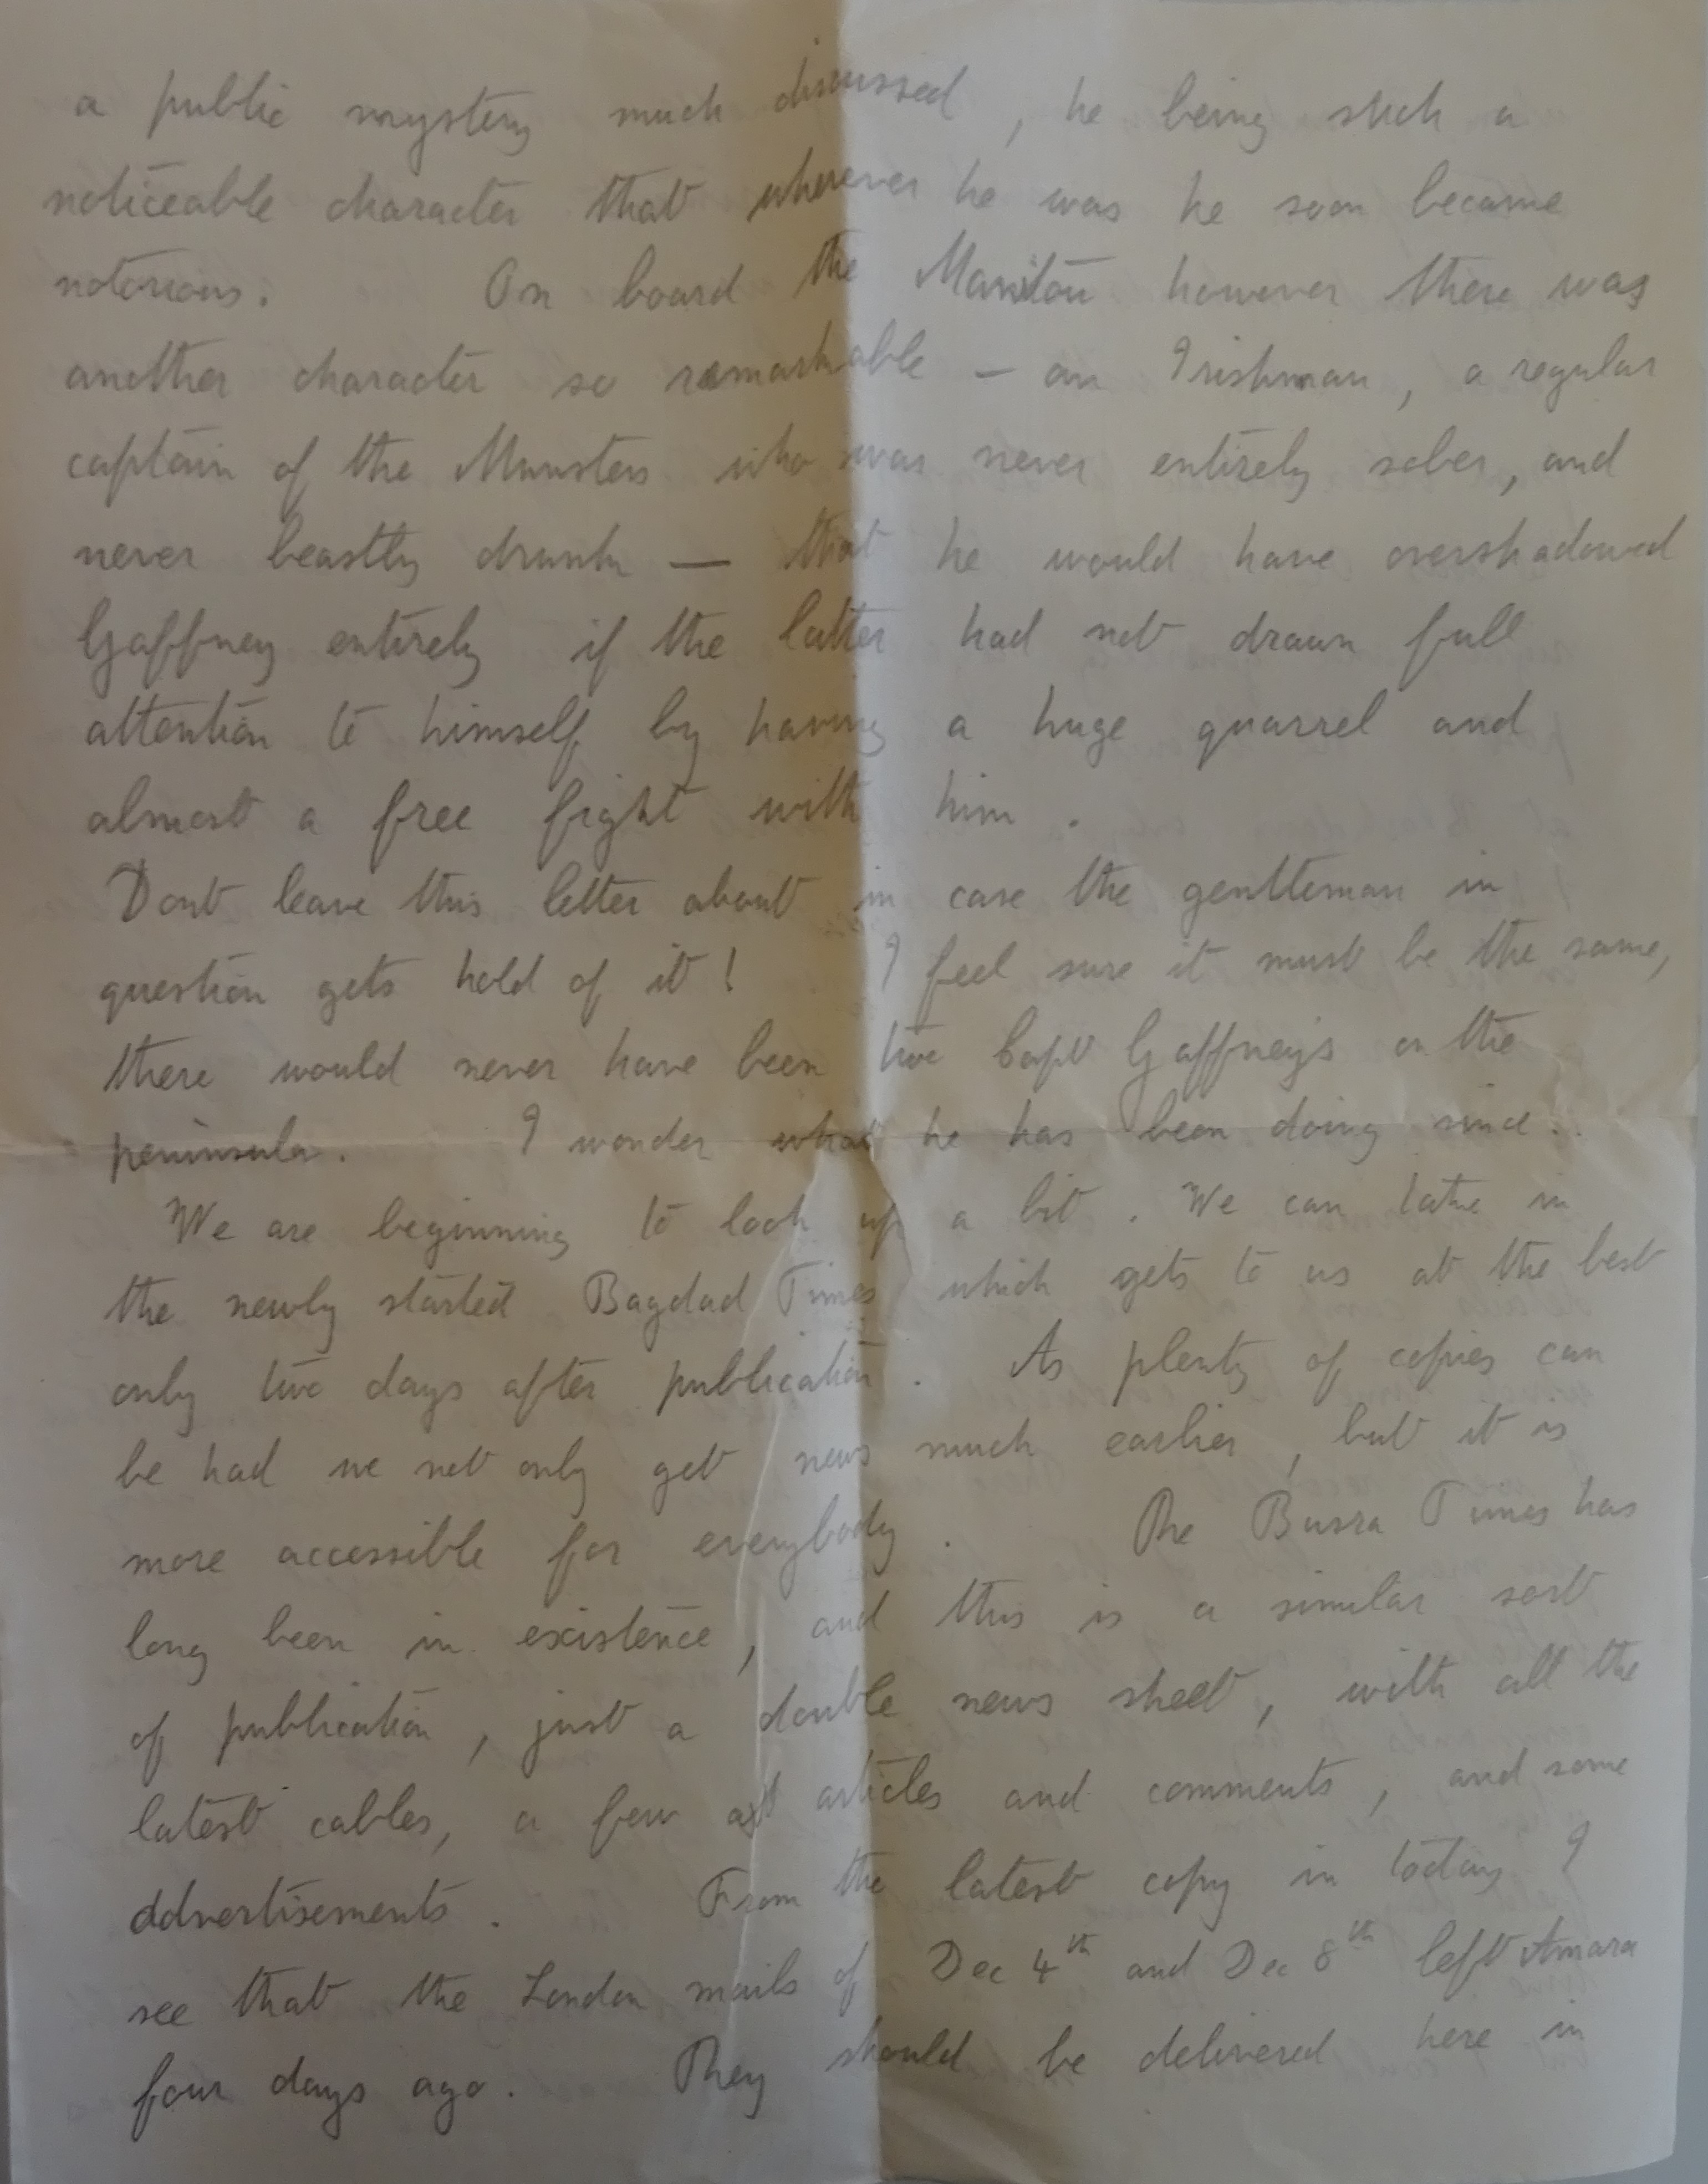 a public mystery much discussed, he being such a
noticeable character that wherever he was he soon became
notorious. On board the Manitou however there was
another character so remarkable — an Irishman, a regular
captain of the Munsters who was never entirely sober, and
never beastly drunk — that he would have overshadowed
Gaffney entirely if the latter had not drawn full
attention to himself by having a huge quarrel and
almost a free fight with him.
Dont leave this letter about in case the gentleman in
question gets hold of it! I feel sure it must be the same,
there would never have been two Capt Gaffneys on the
peninsula. I wonder what he has been doing since..
We are beginning to look up a bit. We can take in
the newly started Bagdad Times which gets to us at the best
only two days after publication. As plenty of copies can
be had we not only get news much earlier, but it is
more accessible for everybody. The Busra Times has
long been in existence, and this is a similar sort
of publication, just a double news sheet, with all the
latest cables, a few articles and comments, and some
advertisements. From the latest copy in today I
see that the London mails of Dec 4th and Dec 8th left Amara
four days ago. They should be delivered here in